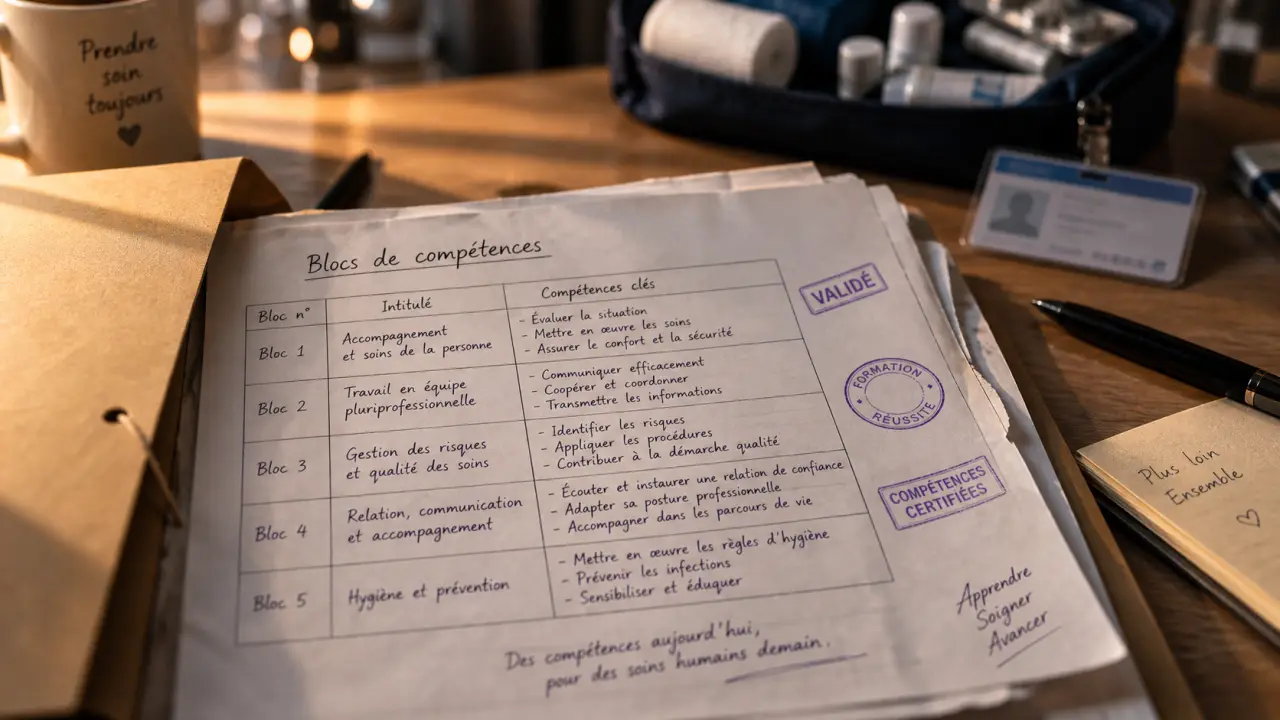 Prendre
soin
toujours
Blocs de compétences
Bloc n° Intitulé Compétences clés
Bloc 1
Accompagnement
et soins de la personne
- Évaluer la situation
- Mettre en œuvre les soins
- Assurer le confort et la sécurité
Bloc 2
Travail en équipe
pluriprofessionnelle
- Communiquer efficacement
- Coopérer et coordonner
- Transmettre les informations
Bloc 3
Gestion des risques
et qualité des soins
- Identifier les risques
- Appliquer les procédures
- Contribuer à la démarche qualité
Bloc 4
Relation, communication
et accompagnement
- Écouter et instaurer une relation de confiance
- Adapter sa posture professionnelle
- Accompagner dans les parcours de vie
Bloc 5
Hygiène et prévention
- Mettre en œuvre les règles d'hygiène
- Prévenir les infections
- Sensibiliser et éduquer
VALIDÉ
FORMATION
RÉUSSITE
COMPÉTENCES
CERTIFIÉES
Des compétences aujourd'hui,
pour des soins humains demain.
Apprendre
Soigner
Avancer
Plus loin
Ensemble